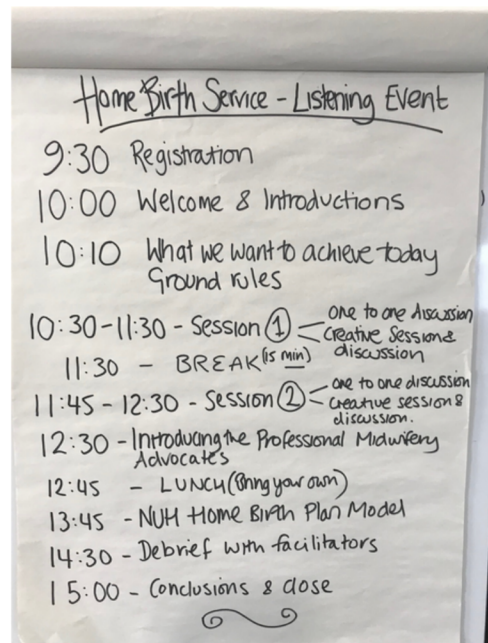 Home Birth Service - Listening Event
9:30 Registration
10:00 Welcome & Introductions
10:10 What we want to achieve today
Ground rules
10:30-11:30 - Session 1 - one to one discussion
Creative Session &
discussion
11:30 - BREAK (15 min)
11:45 - 12:30 - Session 2 - one to one discussion
creative session &
discussion.
12:30 - Introducing the Professional Midwifery
Advocates
12:45 - LUNCH (Bring your own)
13:45 - NUH Home Birth Plan Model
14:30 - Debrief with facilitators
15:00 - Conclusions & close